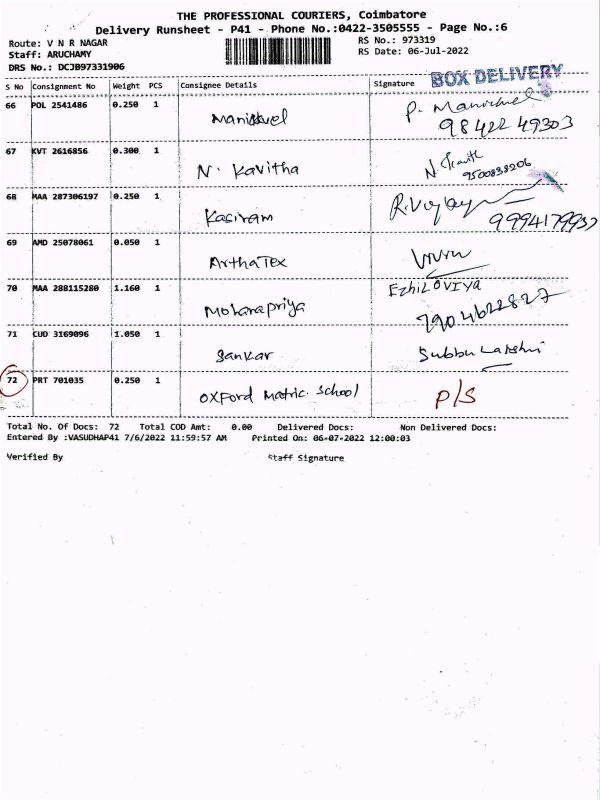 THE PROFESSIONAL COURIERS, Coimbatore
Delivery Runsheet - P41 - Phone No.:0422-3505555 - Page No.:6
Route: V N R NAGAR RS No.: 973319
Staff: ARUCHAMY RS Date: 06-Jul-2022
DRS No.: DCJB97331906
BOX DELIVERY
S No Consignment No Weight PCS Consignee Details Signature
66 POL 2541486 0.250 1 Manickvel P. Manickvel
98422 49303
67 KVT 2616856 0.300 1 N. Kavitha N
9500838206
68 MAA 287306197 0.250 1 Kasiram R.Vijay
9994179937
69 AMD 25078061 0.050 1 ArthaTex
70 MAA 288115280 1.160 1 Moharapriya EzhiLOVIYA
7904622827
71 CUD 3169096 1.050 1 Sankar Subbu Lakshmi
72 PRT 701035 0.250 1 OXFord Matric. School P/S
Total No. Of Docs: 72 Total COD Amt: 0.00 Delivered Docs: Non Delivered Docs:
Entered By :VASUDHAP41 7/6/2022 11:59:57 AM Printed On: 06-07-2022 12:00:03
Verified By Staff Signature